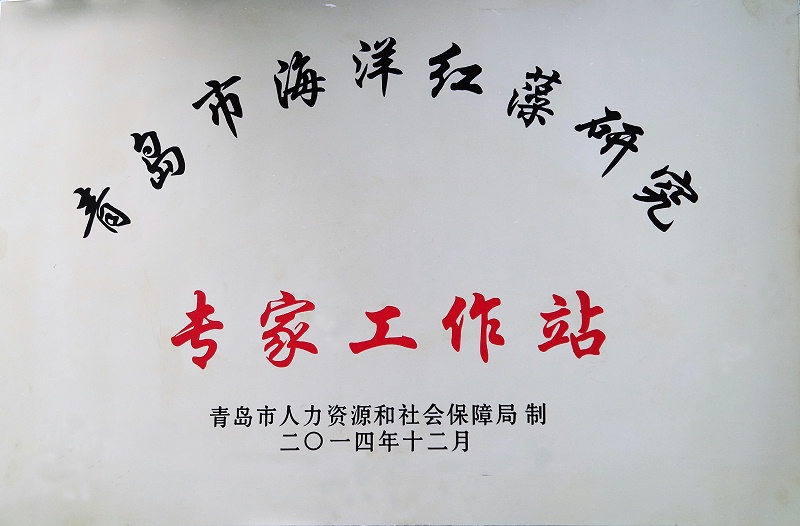 青岛市海洋红藻研究
专家工作站
青岛市人力资源和社会保障局 制
二〇一四年十二月